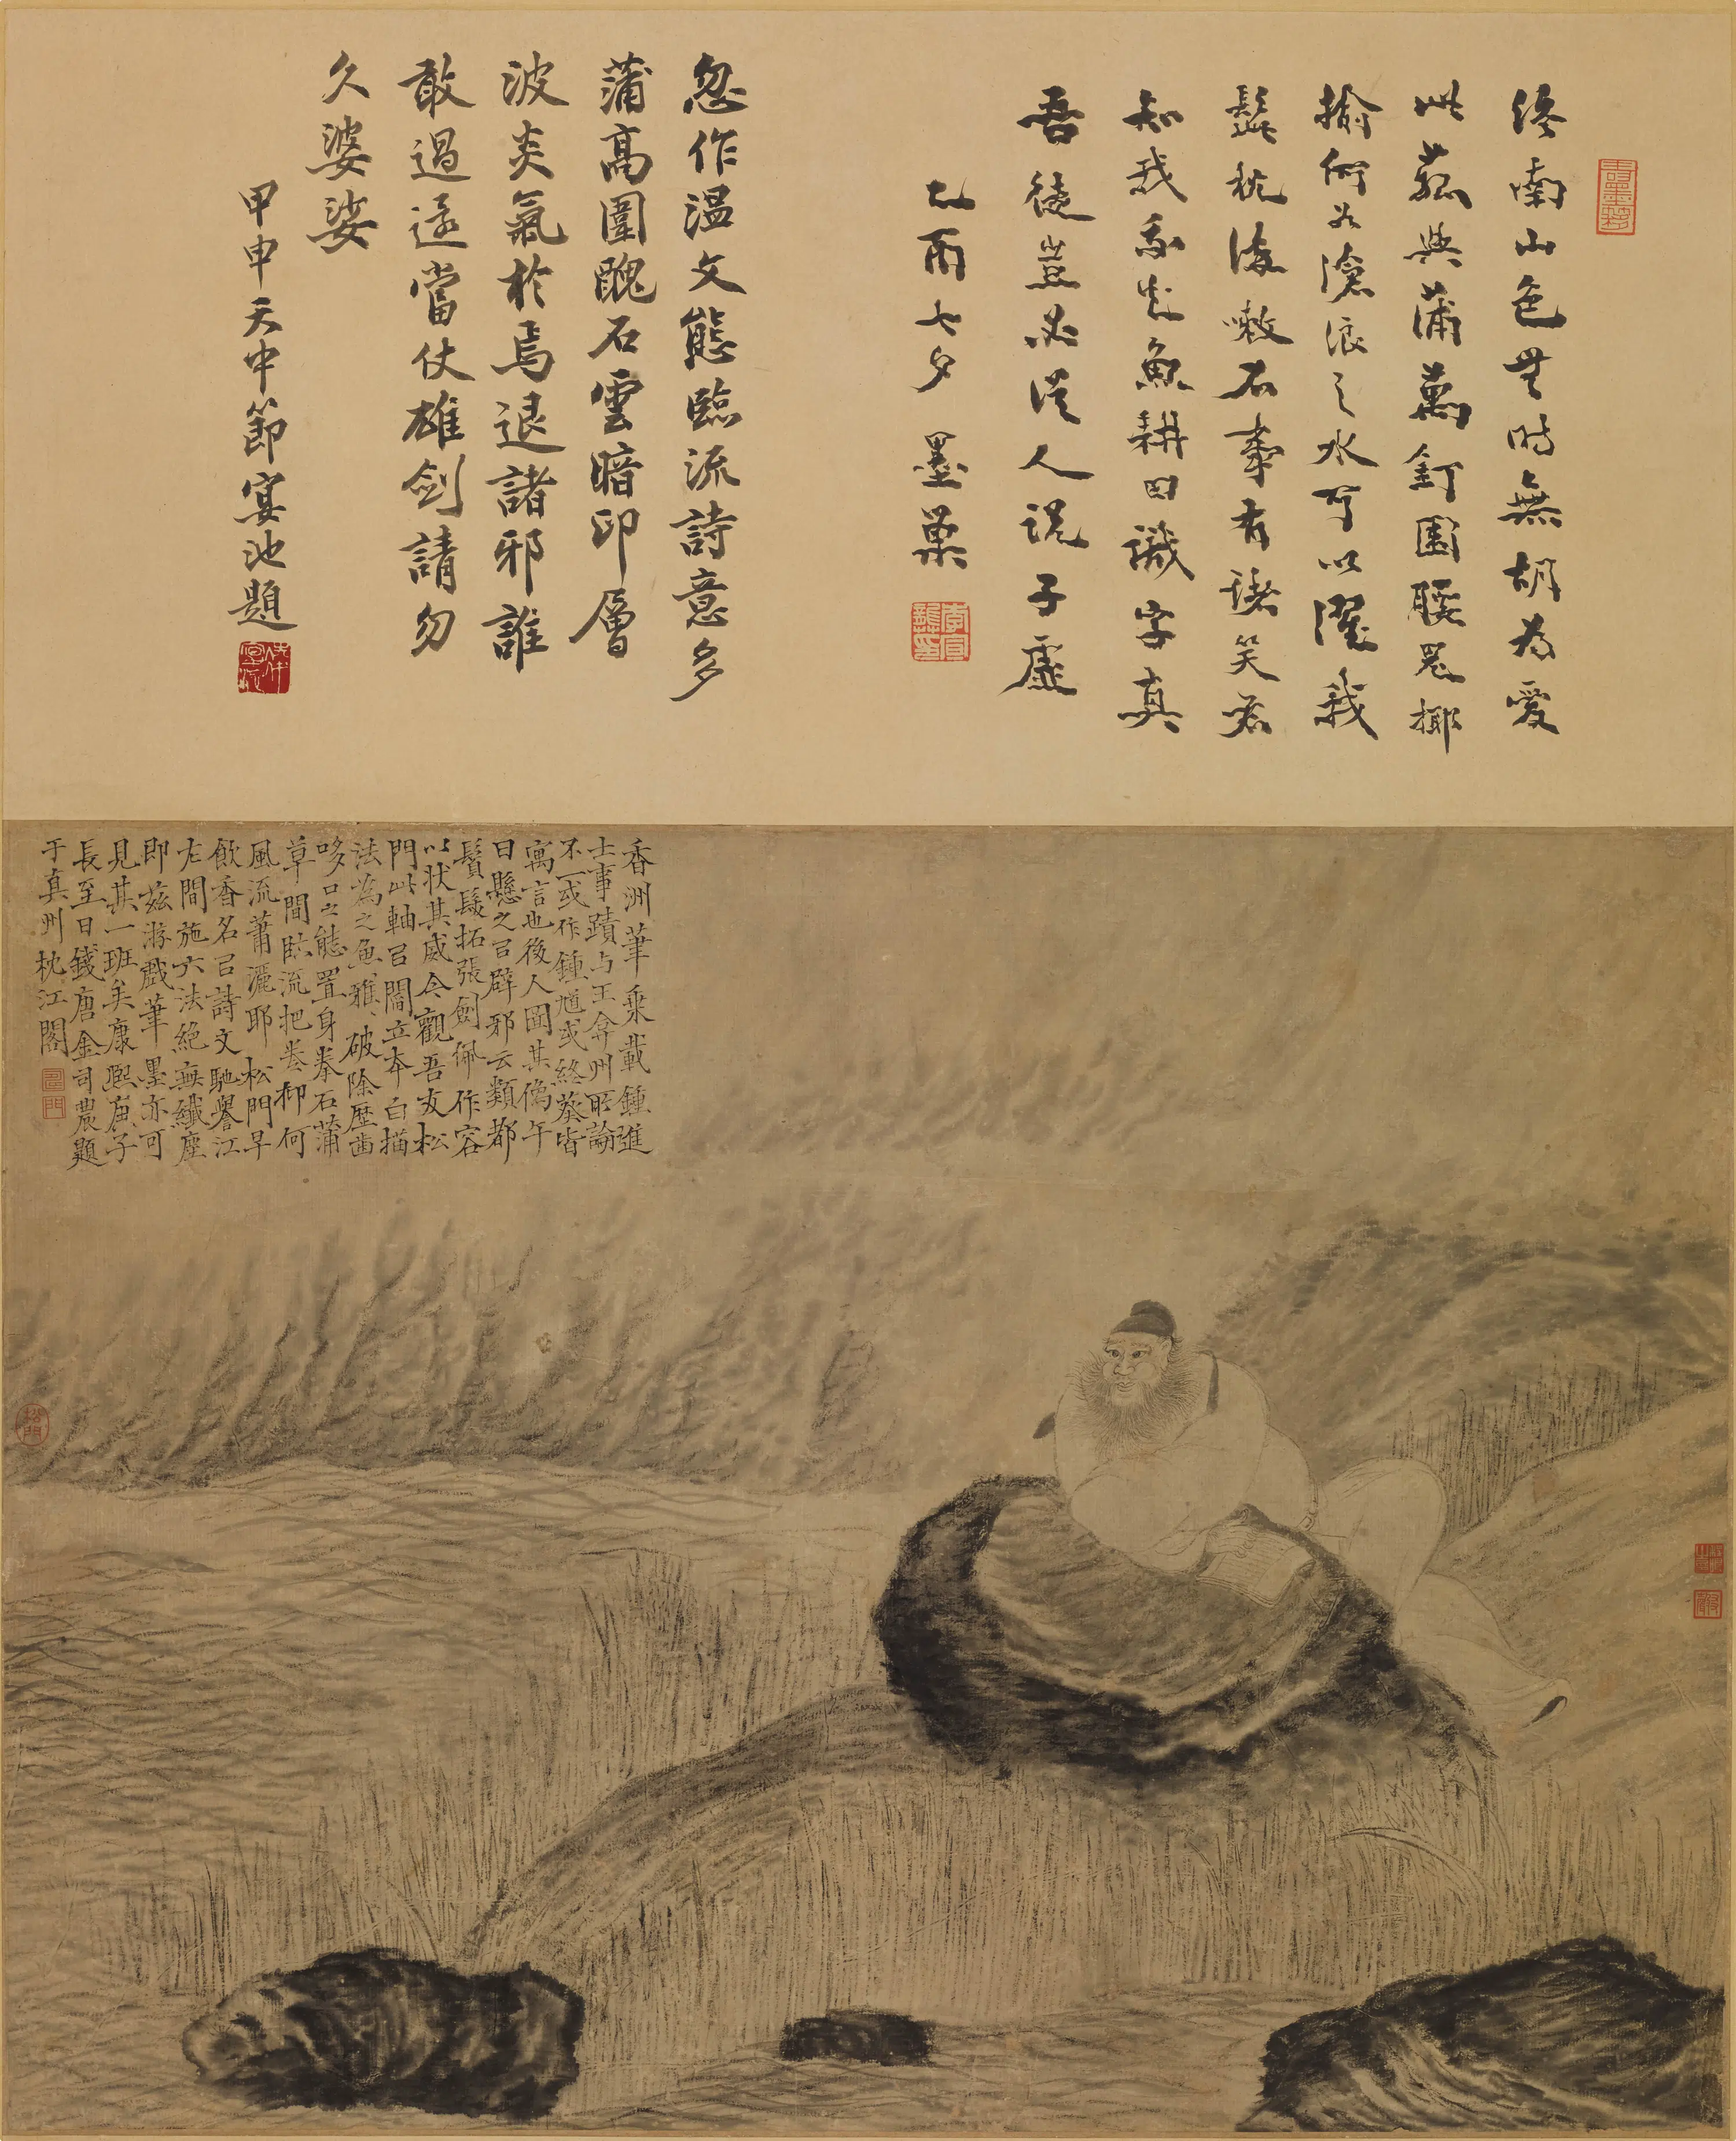 終南山色無時無胡為愛
此菰與蒲萬釘圍腰鬼揶
揄何如滄浪之水可以濯我
髭枕流嗽石事有諸笑君
知我我知魚耕田識字真
吾徒豈必從人説子虛
乙酉七夕 墨巢
忽作溫文態臨流詩意多
蒲高圍醜石雲暗印層
波炎氣於焉退諸邪誰
敢過還當仗雄劍請勿
久婆娑
甲申天中節宴池題
香洲筆乘載鍾進
士事蹟与王弇州所論
不一或作鍾馗或終葵皆
寓言也後人圖其像午
日懸之㠯辟邪云類都
鬢髮拓張劍佩作容
以狀其威今觀吾友松
門此軸㠯閻立本白描
法為之魚雅破除歷齒
哆口之態置身拳石蒲
草間臨流把卷抑何
風流蕭灑耶松門早
飲香名㠯詩文馳譽江
左間施六法絕無纖塵
即茲游戲筆墨亦可
見其一斑矣康熙庚子
長至日錢唐金司農題
于真州枕江閣
松門